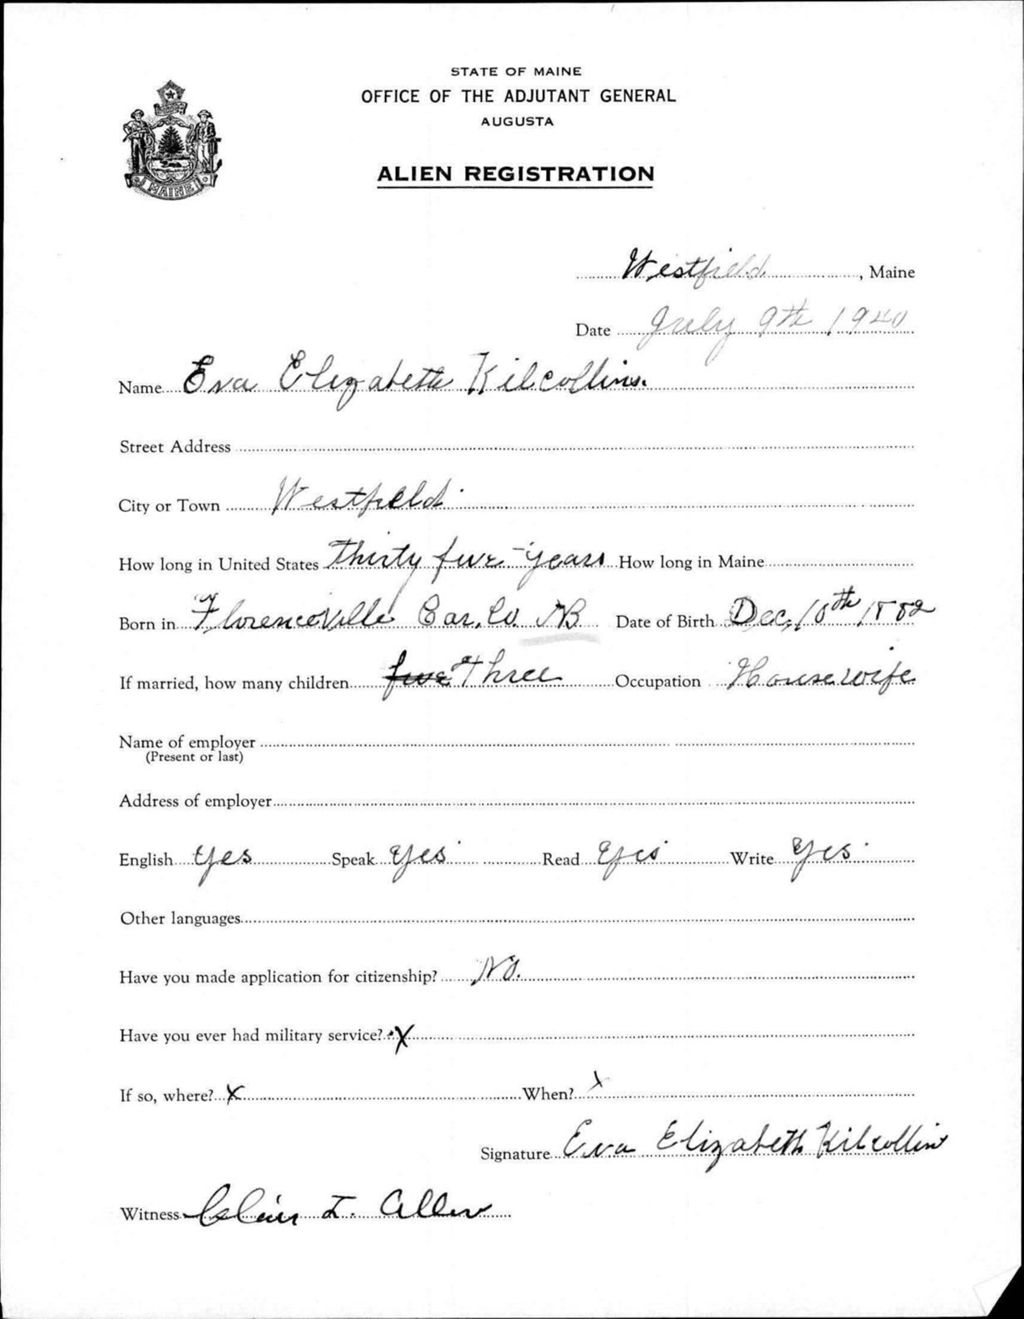 STATE OF MAINE
OFFICE OF THE ADJUTANT GENERAL
AUGUSTA
ALIEN REGISTRATION
MAINE
Westfield, Maine
Date July 9th 1940
Name Eva Elizabeth Kilcollins.
Street Address
City or Town Westfield.
How long in United States Thirty five years How long in Maine
Born in Florenceville Car. Co. NB Date of Birth Dec, 10th 1882
If married, how many children five Three Occupation Housewife
Name of employer
(Present or last)
Address of employer
English Yes Speak Yes Read Yes Write Yes
Other languages
Have you made application for citizenship? No.
Have you ever had military service? X
If so, where? X When? X
Signature Eva Elizabeth Kilcollins
Witness Clair I. Allen